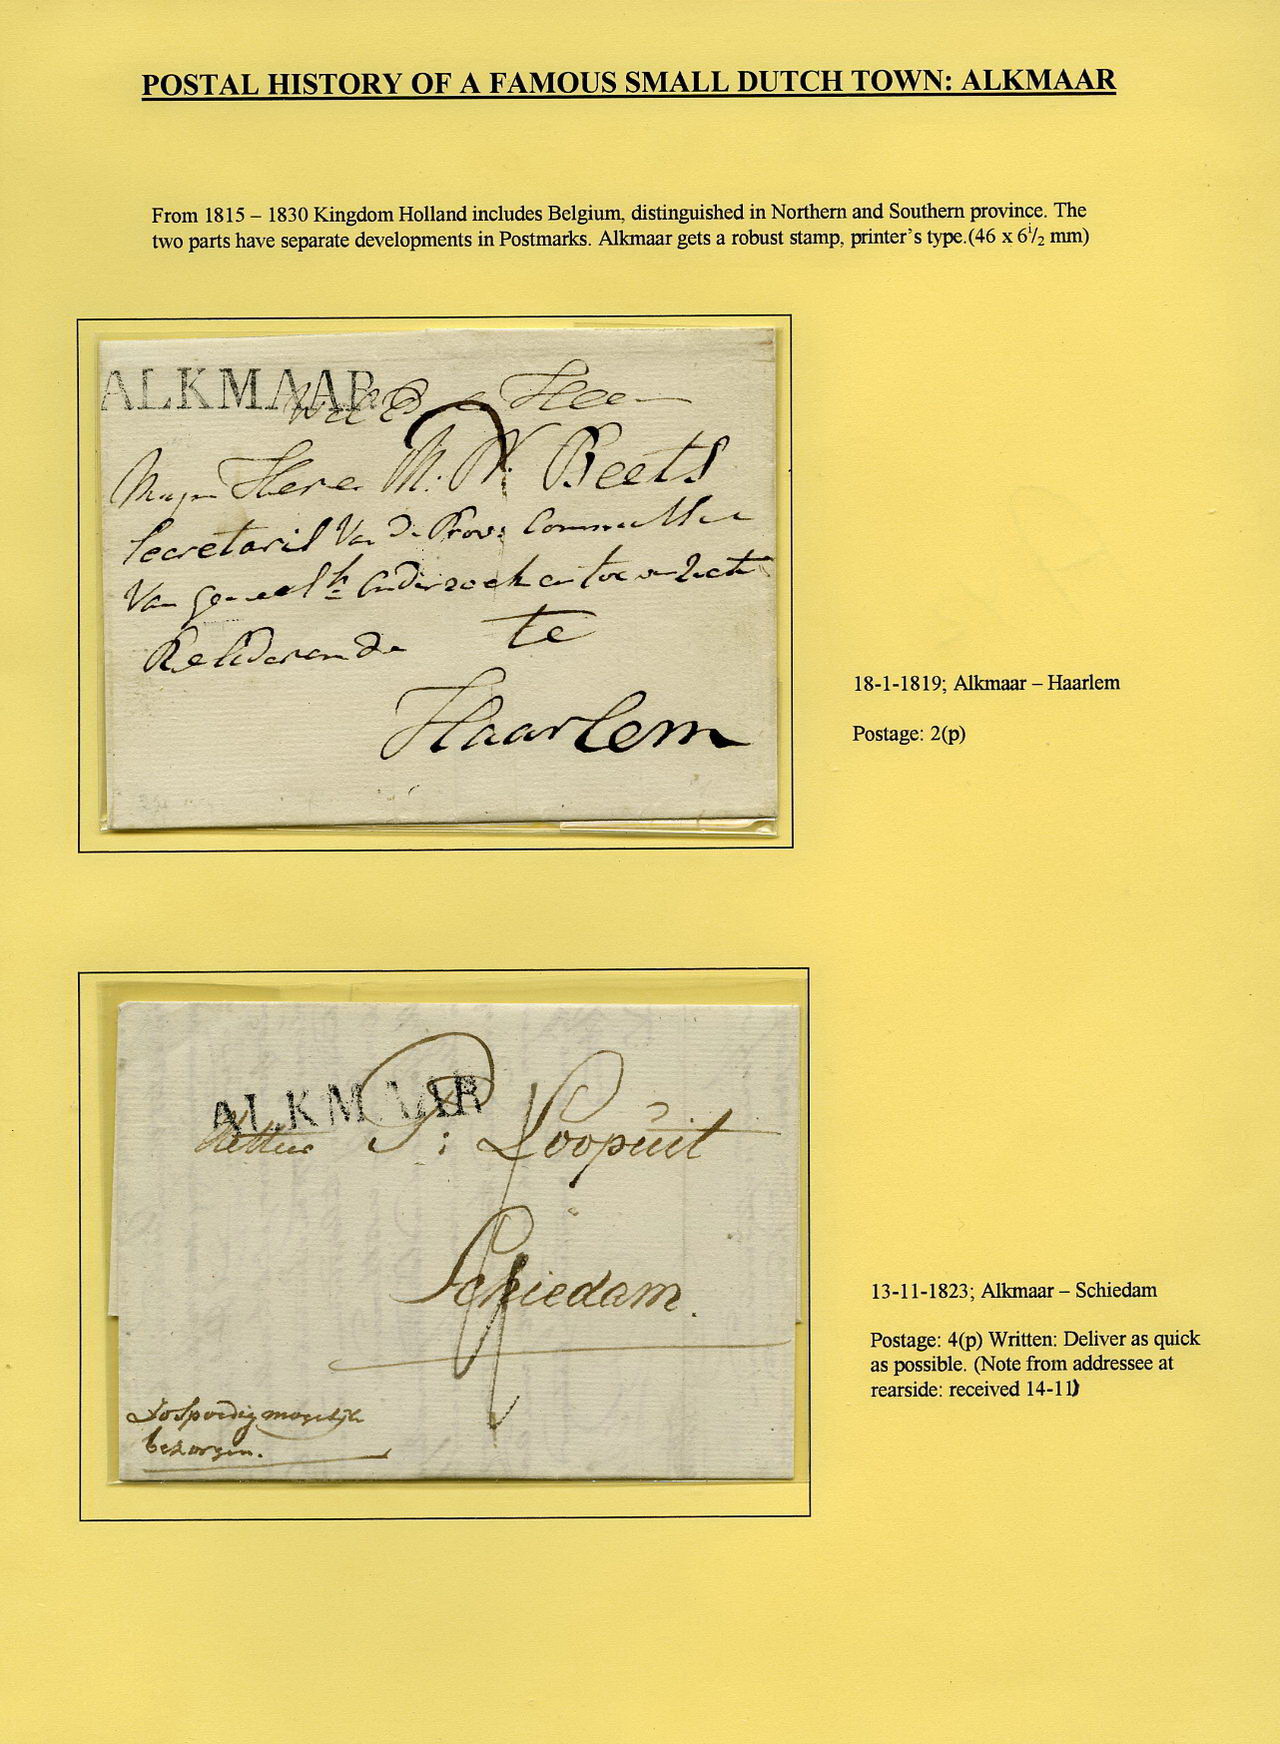 POSTAL HISTORY OF A FAMOUS SMALL DUTCH TOWN: ALKMAAR
From 1815 – 1830 Kingdom Holland includes Belgium, distinguished in Northern and Southern province. The
two parts have separate developments in Postmarks. Alkmaar gets a robust stamp, printer's type.(46 x 6 1/2 mm)
ALKMAAR
Heer
Myn Here M: N: Beets
Secretaris Van de Prov:
Van en
te
Haarlem
18-1-1819; Alkmaar – Haarlem
Postage: 2(p)
ALKMAAR
P: Loopuit
Schiedam.
Zo Spoedig mogelijk
bezorgen.
13-11-1823; Alkmaar – Schiedam
Postage: 4(p) Written: Deliver as quick
as possible. (Note from addressee at
rearside: received 14-11)